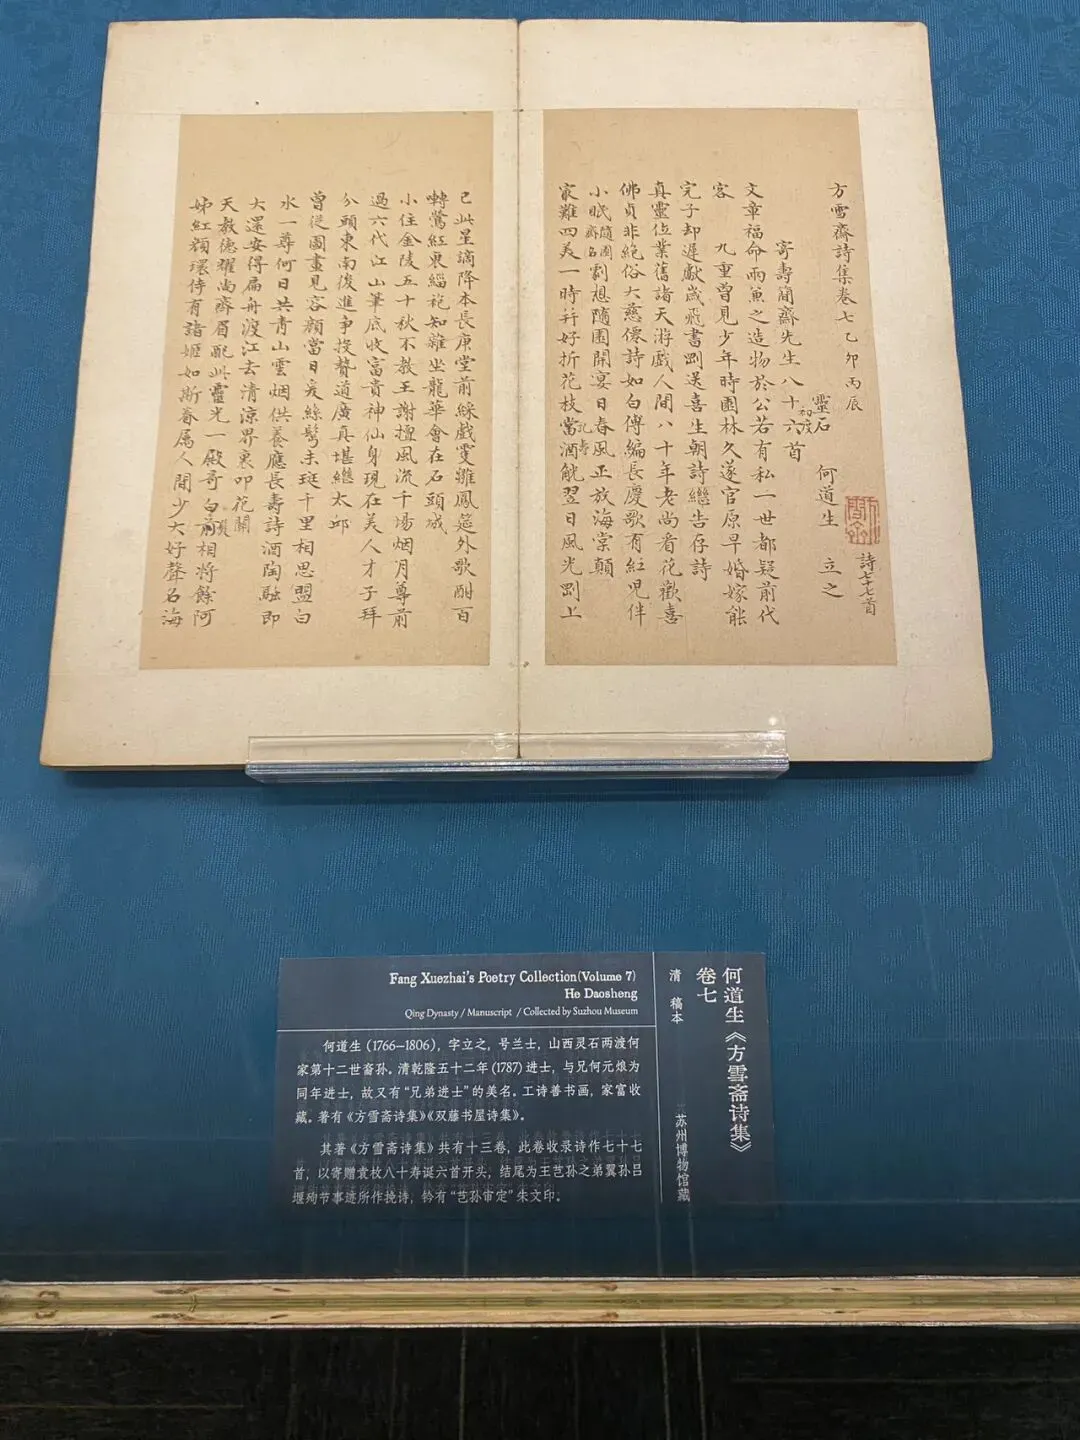 方雪齋詩集卷七 乙卯丙辰 詩七十七首
靈石 何道生 立之
寄壽簡齋先生八十初度六首
文章福命兩兼之造物於公若有私一世都疑前代
客 九重曾見少年時園林久遂官原早婚嫁能
完子却遲獻歲飛書剛送喜生朝詩繼告存詩
真靈位業舊諸天游戲人間八十年老尚看花歡喜
佛貞非絕俗大慈僊詩如白傅編長慶歌有紅兒伴
小眠隨園齋名劇想隨園開宴日春風正放海棠顛
家難四美一時并好折花枝當酒觥翌日風光剛上
已此星謫降本長庚堂前綵戲雙雛鳳筵外歌酣百
囀鶯紅裏緇袍知雜坐龍華會在石頭城
小住金陵五十秋不教王謝擅風流千場烟月尊前
過六代江山筆底收富貴神仙身現在美人才子拜
分頭東南後進爭投贄道廣真堪繼太邱
曾從圖畫見容顏當日爰絲鬢未斑千里相思盟白
水一尊何日共青山雲烟供養應長壽詩酒陶融即
大還安得扁舟渡江去清涼界裏叩花關
天教德耀尚齊眉配此靈光一殿奇白髮前相將餘阿
姊紅顏環侍有諸姬如斯眷屬人間少大好聲名海
Fang Xuezhai's Poetry Collection(Volume 7)
He Daosheng
Qing Dynasty / Manuscript / Collected by Suzhou Museum
何道生 (1766—1806)，字立之，号兰士，山西灵石两渡何
家第十二世裔孙。清乾隆五十二年 (1787) 进士，与兄何元烺为
同年进士，故又有“兄弟进士”的美名。工诗善书画，家富收
藏。著有《方雪斋诗集》《双藤书屋诗集》。
其著《方雪斋诗集》共有十三卷，此卷收录诗作七十七
首，以寄赠袁枚八十寿诞六首开头，结尾为王芑孙之弟翼孙吕
堰殉节事迹所作挽诗，钤有“芑孙审定”朱文印。
何道生《方雪斋诗集》
卷七
清 稿本
苏州博物馆藏